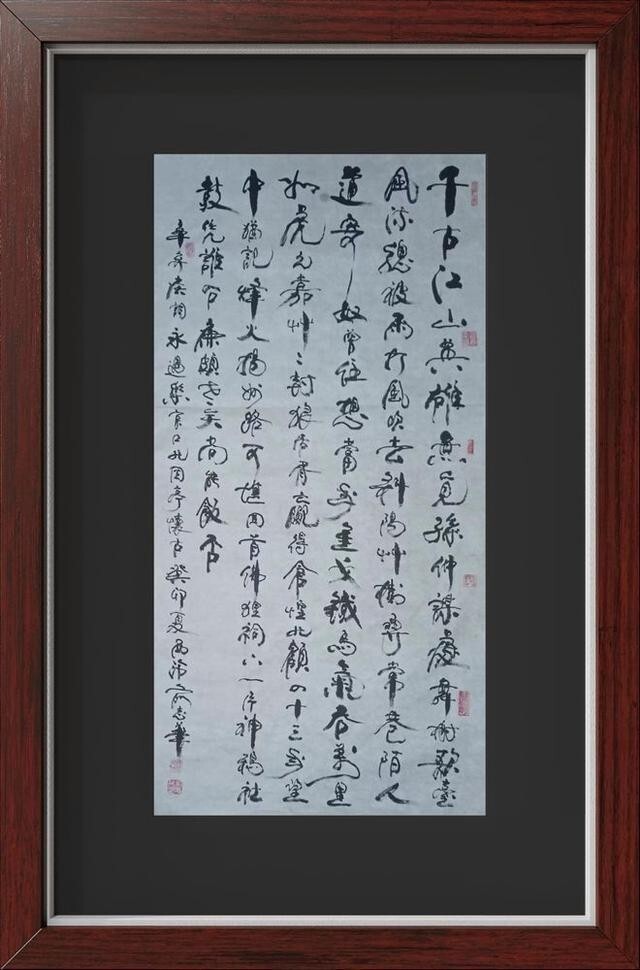 千古江山英雄無覓孫仲謀處舞榭歌臺
風流總被雨打風吹去斜陽艸樹尋常巷陌人
道寄奴曾住想當年金戈鐵馬氣吞萬里
如虎元嘉艸〻封狼居胥贏得倉惶北顧四十三年望
中猶記烽火揚州路可堪回首佛狸祠下一片神鴉社
鼓凭誰問廉頗老矣尚能飯否
辛棄疾詞永遇樂京口北固亭懷古癸卯夏志華